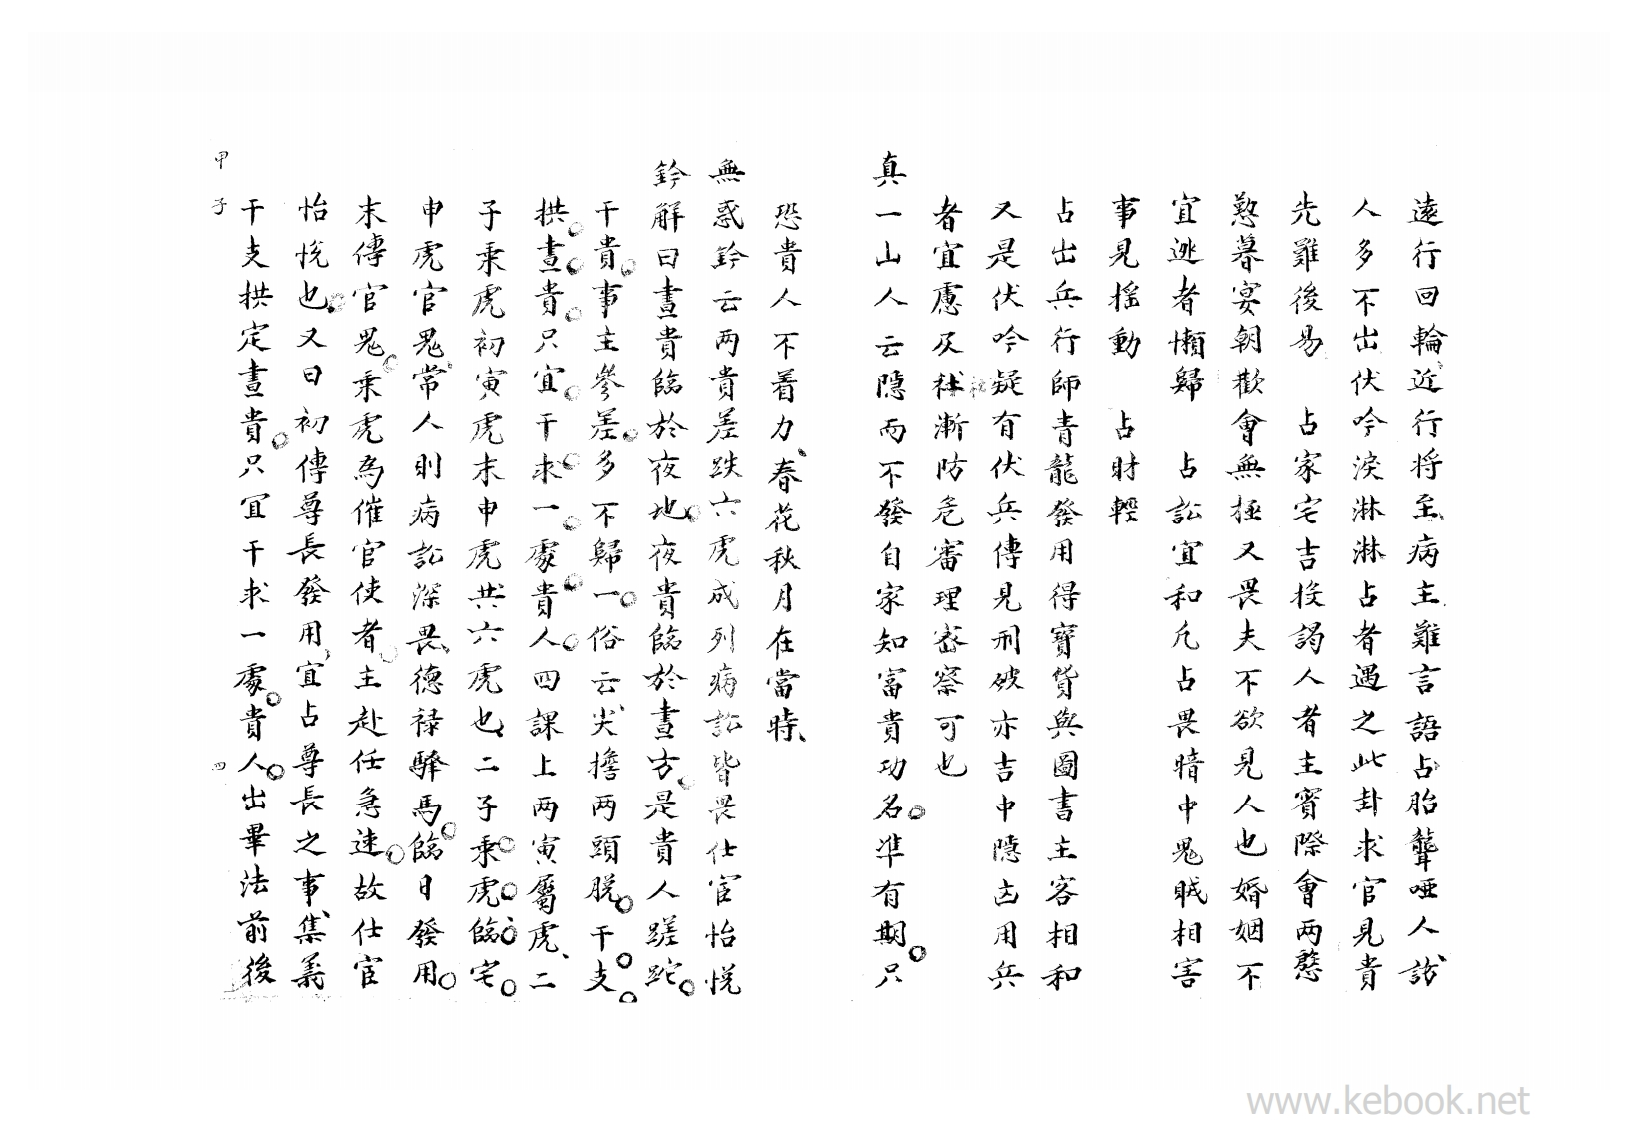 遠行回輪近行将至病主難言語占胎聾啞人訪
人多不出伏吟淚淋淋占者遇之此卦求官見貴
先難後易　占家宅吉投謁人者主賓際會兩懸
懃暮宴朝歡會無極又畏夫不欲見人也婚姻不
宜逃者懶歸　占訟宜和凢占畏暗中鬼賊相害
事見揺動　占財輕
占出兵行師青龍發用得寶貨與圖書主客相和
又是伏吟疑有伏兵傳見刑破亦吉中隱凶用兵
者宜慮及杜漸防危審理宻察可也
真一山人云隱而不發自家知富貴功名准有期只
恐貴人不着力春花秋月在當時
無惑鈐云兩貴差跌六虎成列病訟皆畏仕宦怡悅
鈐解曰晝貴臨於夜地夜貴臨於晝方是貴人蹉跎
干貴事主參差多不歸一俗云尖擔兩頭脱干支
拱晝貴只宜干求一處貴人四課上兩寅屬虎二
子乘虎初寅虎末申虎共六虎也二子乘虎臨宅
申虎官鬼常人則病訟深畏德禄驛馬臨日發用
末傳官鬼乘虎為催官使者主赴任急速故仕宦
怡悅也又曰初傳尊長發用宜占尊長之事集義
干支拱定晝貴只宜干求一處貴人出畢法前後
甲子　四
www.kebook.net